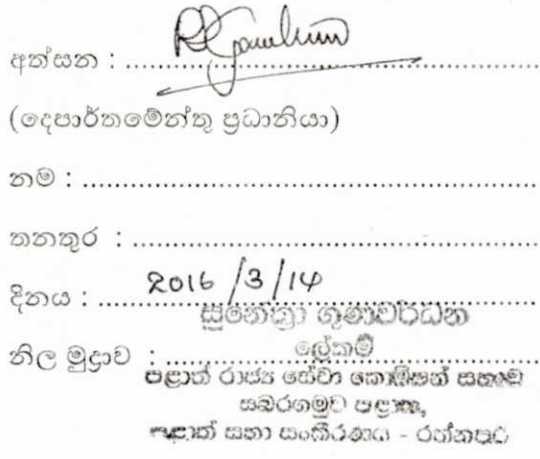 අත්සන : ........................
(දෙපාර්තමේන්තු ප්‍රධානියා)
නම : ........................
තනතුර : ........................
දිනය : 2016/3/14
සුනේත්‍රා ගුණවර්ධන
නිල මුද්‍රාව : ලේකම්
පළාත් රාජ්‍ය සේවා කොමිෂන් සභාව
සබරගමුව පළාත,
පළාත් සභා සංකීරණය - රත්නපුර